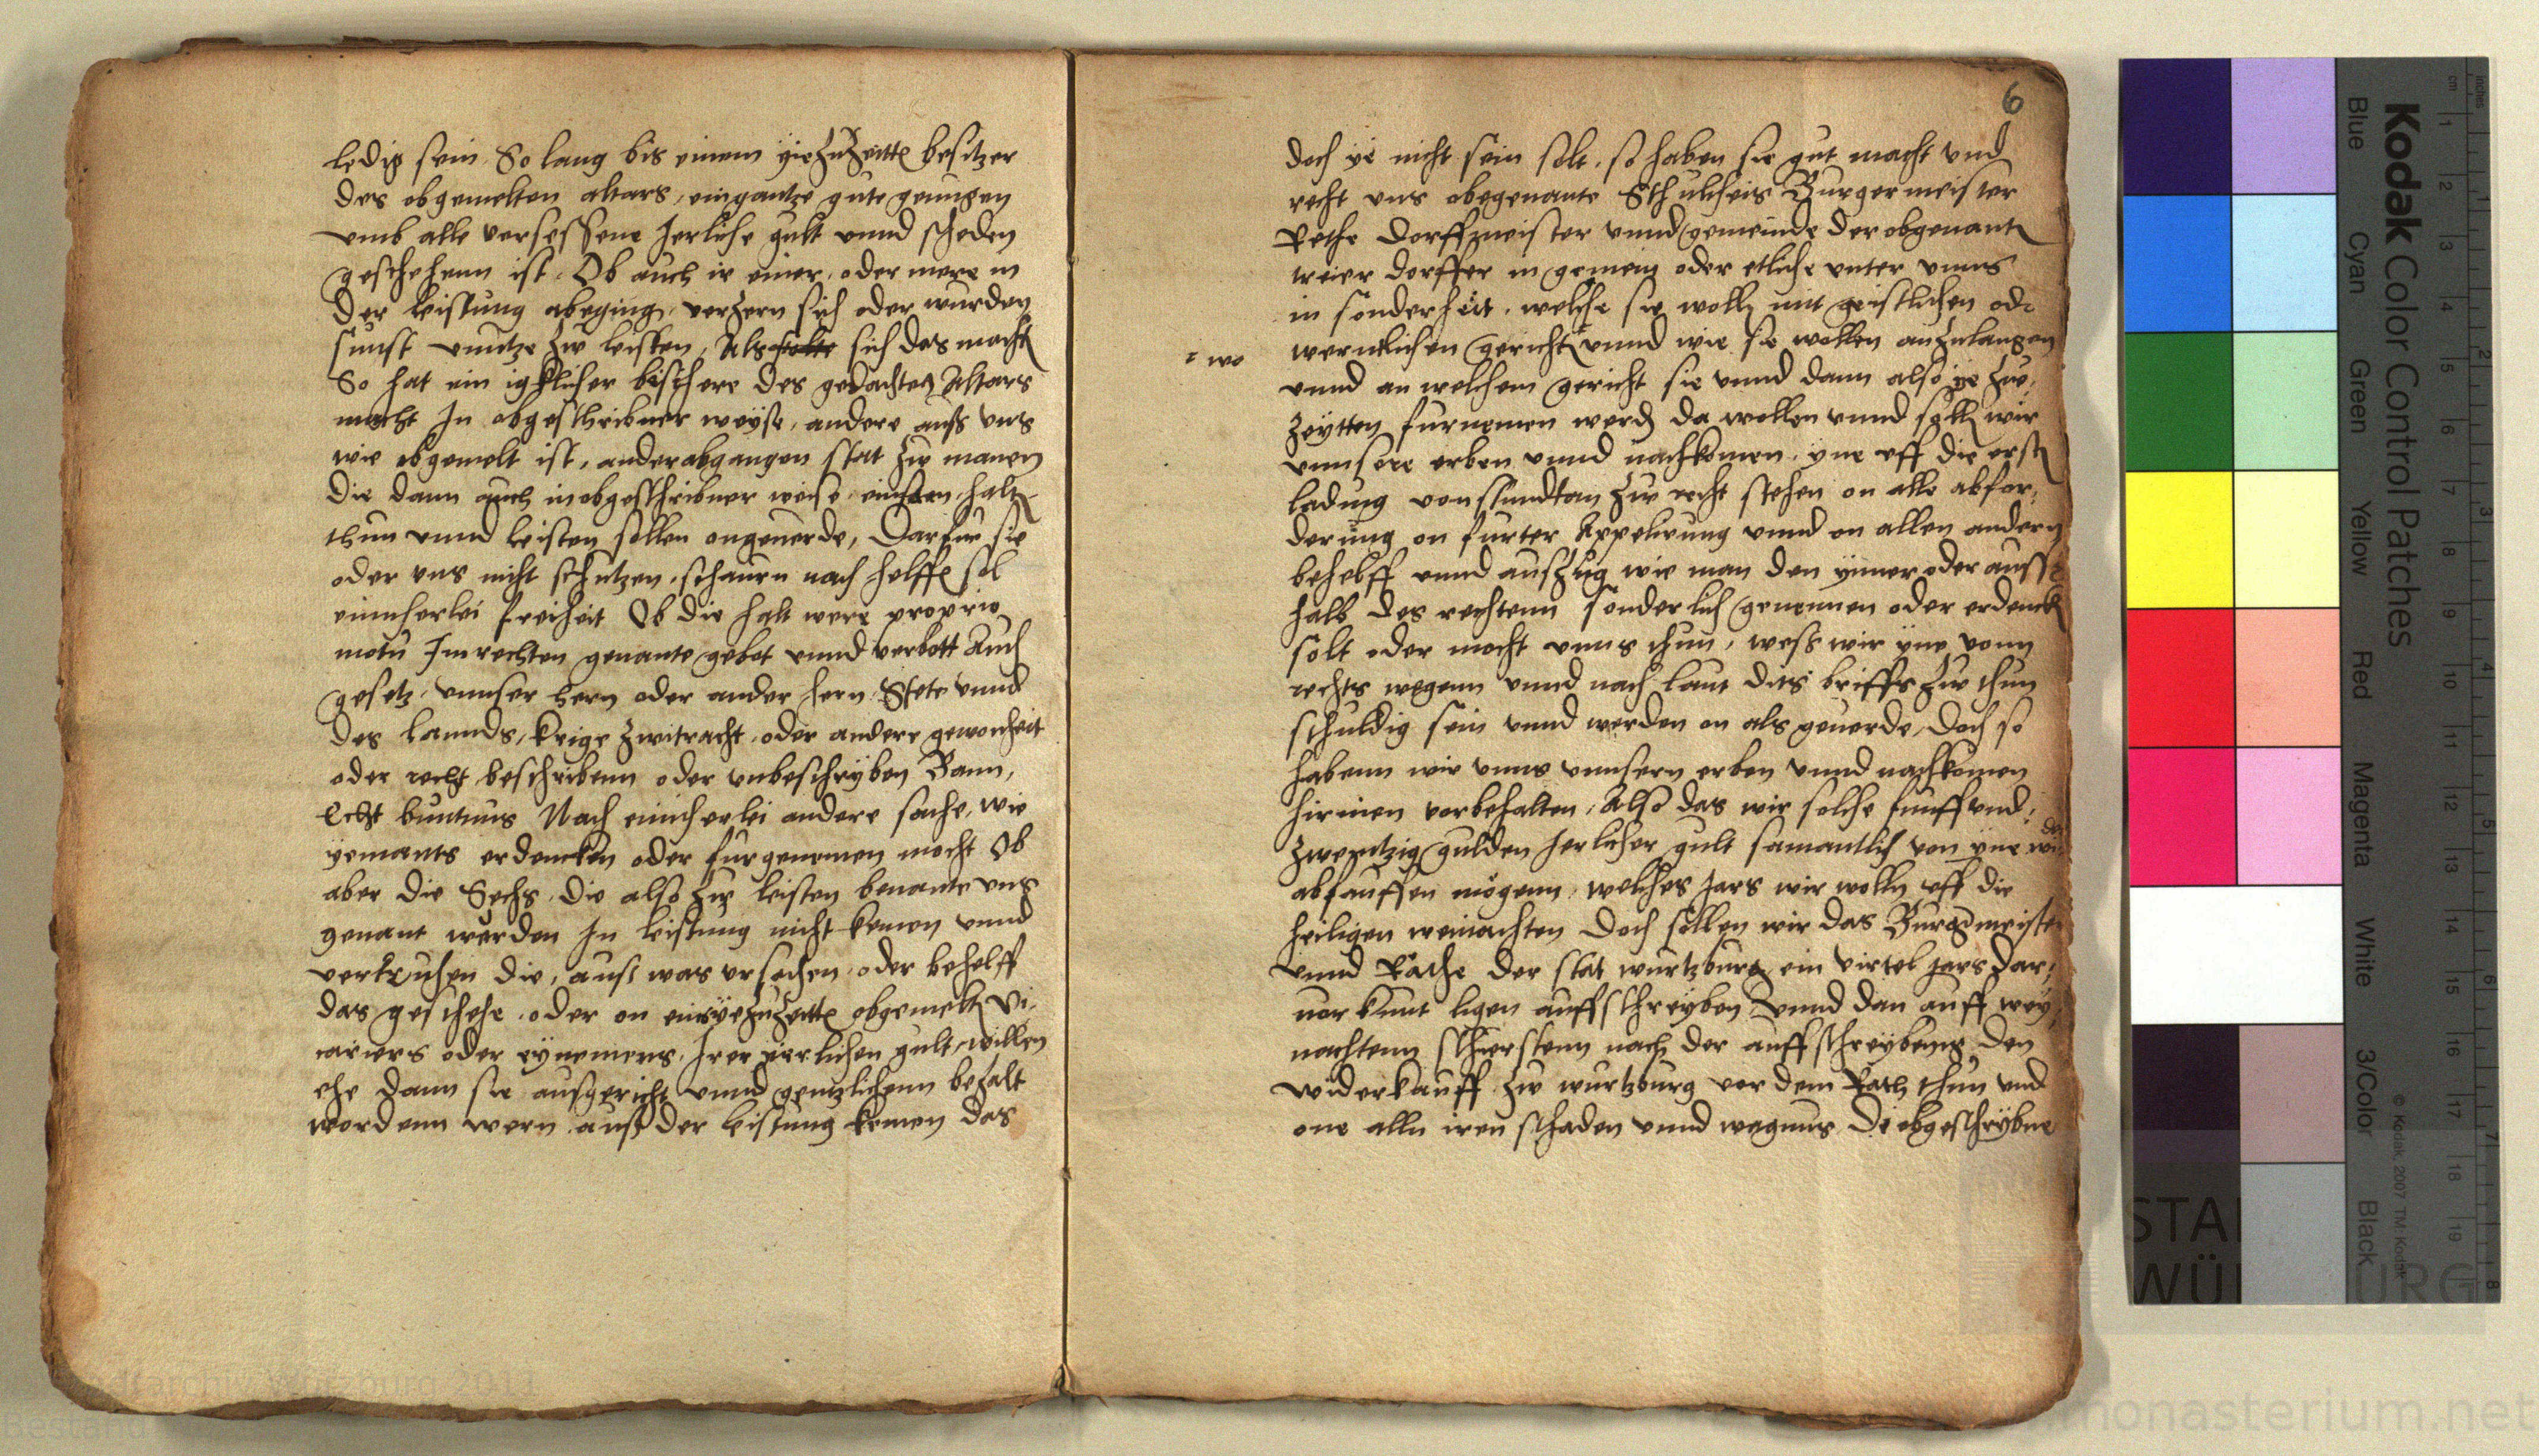 ledig sein So lang bis einem yiezuZeitte besitzer
des obgemelten altars, ein gantze gute genugen
vmb alle versessene Jerliche gult vnnd scheden
geschehenn ist. Ob auch ir einer, oder mere in
der leistung abeging, verzern sich oder wurden
sunst vnutze zw leisten, Als solte sich das macht
So hat ein igklicher besitzere des gedachten Altars
macht In obgeschribner weyse, andere auss vns
wie obgemelt ist, ander abgangen stat zw manen
die dann auch in obgeschribner weise einfaren halten
thun vnnd leisten sollen ongeuerde, Darfur sie
oder vns nicht schutzen, schauren nach helffen sol
einicherlei freiheit Ob die halt were proprio
motu Im rechten genante gebot vnnd verbott Auch
gesetz, vnnser hern oder ander hern Stete vnnd
des lannds, krige zwitracht, oder andere gewonheit
oder recht beschribenn oder vnbeschryben Bann,
Echt buntnus Nach einicherlei andere sache, wie
yemants erdencken oder furgenemen mocht Ob
aber die Sechs, die also zw leisten benante vns
genant wurden In leistung nicht kemen vnnd
verbruchen die, auss was vrsachen, oder behelff
das geschehe, oder on eins yezuzeitte obgemelten vi-
cariers oder eynemers, Irer jerlichen gult, willen
ehe dann sie aussgericht vnnd gentzlichenn bezalt
wordenn wern, auss der leistung kemen das
6
doch ye nicht sein solt, so haben sie gut macht vnd
recht vns obegenante Schultheis Burgermeister
Rethe Dorffmeister vnnd gemeinde der obgenanten
treier dorffer in gemein oder etliche vnter vnns
in sonderheit, welche sie wolln mit geistlichen oder
= wo werntlichen gerichten vnnd wie sie wollen anzulangen
vnnd an welchem gericht sie vnnd dann also ye zw,
Zeytten furnemen werden da wollen vnnd solln wir
vnnsere erben vnnd nachkomen, yne vff die ersten
ladung von stundtan zw recht stehen on alle abfor,
derung on furter Appelirung vnnd on allen andern
behelff vnnd auszug wie man den ynner oder ausser
halb des rechtenn sonderlich genennen oder erdencken
solt oder mocht vnns thun, wess wir yne vonn
rechts wegenn vnnd nach laut dits briffs zw thun
schuldig sein vnnd werden on als geuerde, Doch so
habenn wir vnns vnnsern erben vnnd nachkomen
hirinen vorbehalten, Also das wir solche funff vnd,
zwentzig gulden Jerlicher gult samantlich von yne wi,
der
abkauffen mögenn, welches Jars wir wolln vff die
heiligen weinachten Doch sollen wir das Burgermeister
vnnd Räthe der stat wurtzburg ein virtel jars dar,
uor kunt ligen auffschreyben vnnd dan auff wey,
nachtenn schirstenn nach der auffschreybenns, den
widerkauff zw wurtzburg vor dem Rath thun vnd
one alln iren schaden vnnd wegnus Die obgeschrybne
Kodak Color Control Patches
Blue Cyan Green Yellow Red Magenta White 3/Color Black
© Kodak, 2007 TM: Kodak
cm 1 2 3 4 5 6 7 8 9 10 11 12 13 14 15 16 17 18 19
inches 1 2 3 4 5 6 7 8
monasterium.net